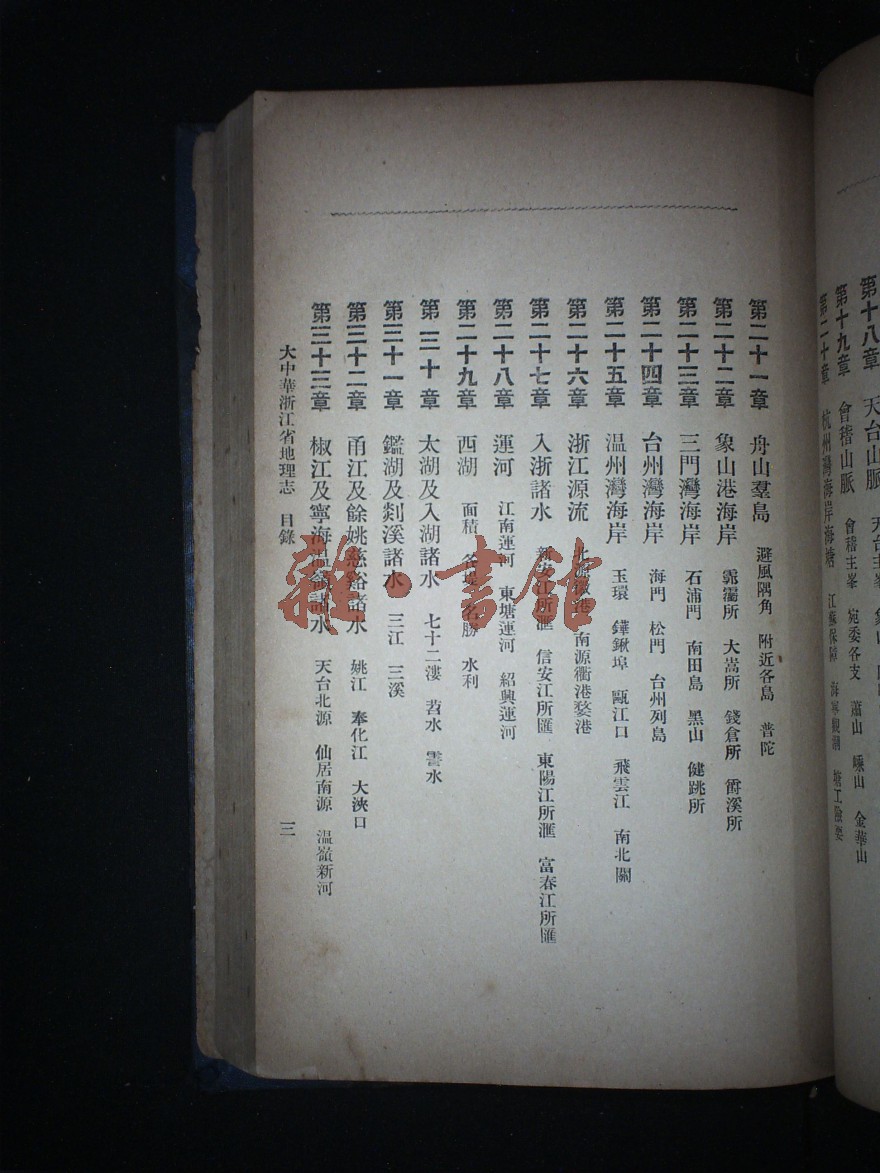 第十八章　天台山脈　天台主峯
第十九章　會稽山脈　會稽主峯　宛委各支　蕭山　嵊山　金華山
第二十章　杭州灣海岸海塘　江蘇保障　海寧觀潮　塘工險要
第二十一章　舟山羣島　避風隅角　附近各島　普陀
第二十二章　象山港海岸　霩𩆩所　大嵩所　錢倉所　爵溪所
第二十三章　三門灣海岸　石浦門　南田島　黑山　健跳所
第二十四章　台州灣海岸　海門　松門　台州列島
第二十五章　温州灣海岸　玉環　鏵鍬埠　甌江口　飛雲江　南北關
第二十六章　浙江源流　北源徽港　南源衢港婺港
第二十七章　入浙諸水　新安江所匯　信安江所匯　東陽江所滙　富春江所匯
第二十八章　運河　江南運河　東塘運河　紹興運河
第二十九章　西湖　面積　名堤　名勝　水利
第三十章　太湖及入湖諸水　七十二漊　苕水　霅水
第三十一章　鑑湖及剡溪諸水　三江　三溪
第三十二章　甬江及餘姚慈谿諸水　姚江　奉化江　大浹口
第三十三章　椒江及寧海温嶺諸水　天台北源　仙居南源　温嶺新河
大中華浙江省地理志　目錄　三
雜·書館